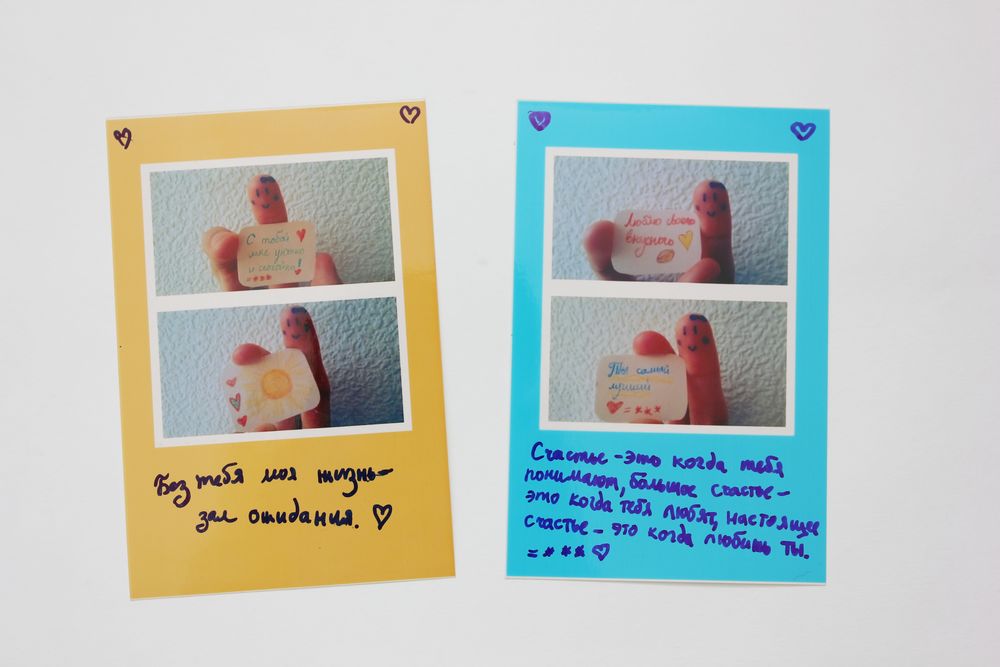 С тобой
мне уютно
и спокойно!
=***
Без тебя моя жизнь-
зал ожидания.
Люблю своего
вкусного
Ты самый
лучший
=***
Счастье - это когда тебя
понимают, большое счастье -
это когда тебя любят, настоящее
счастье - это когда любишь ты.
=***